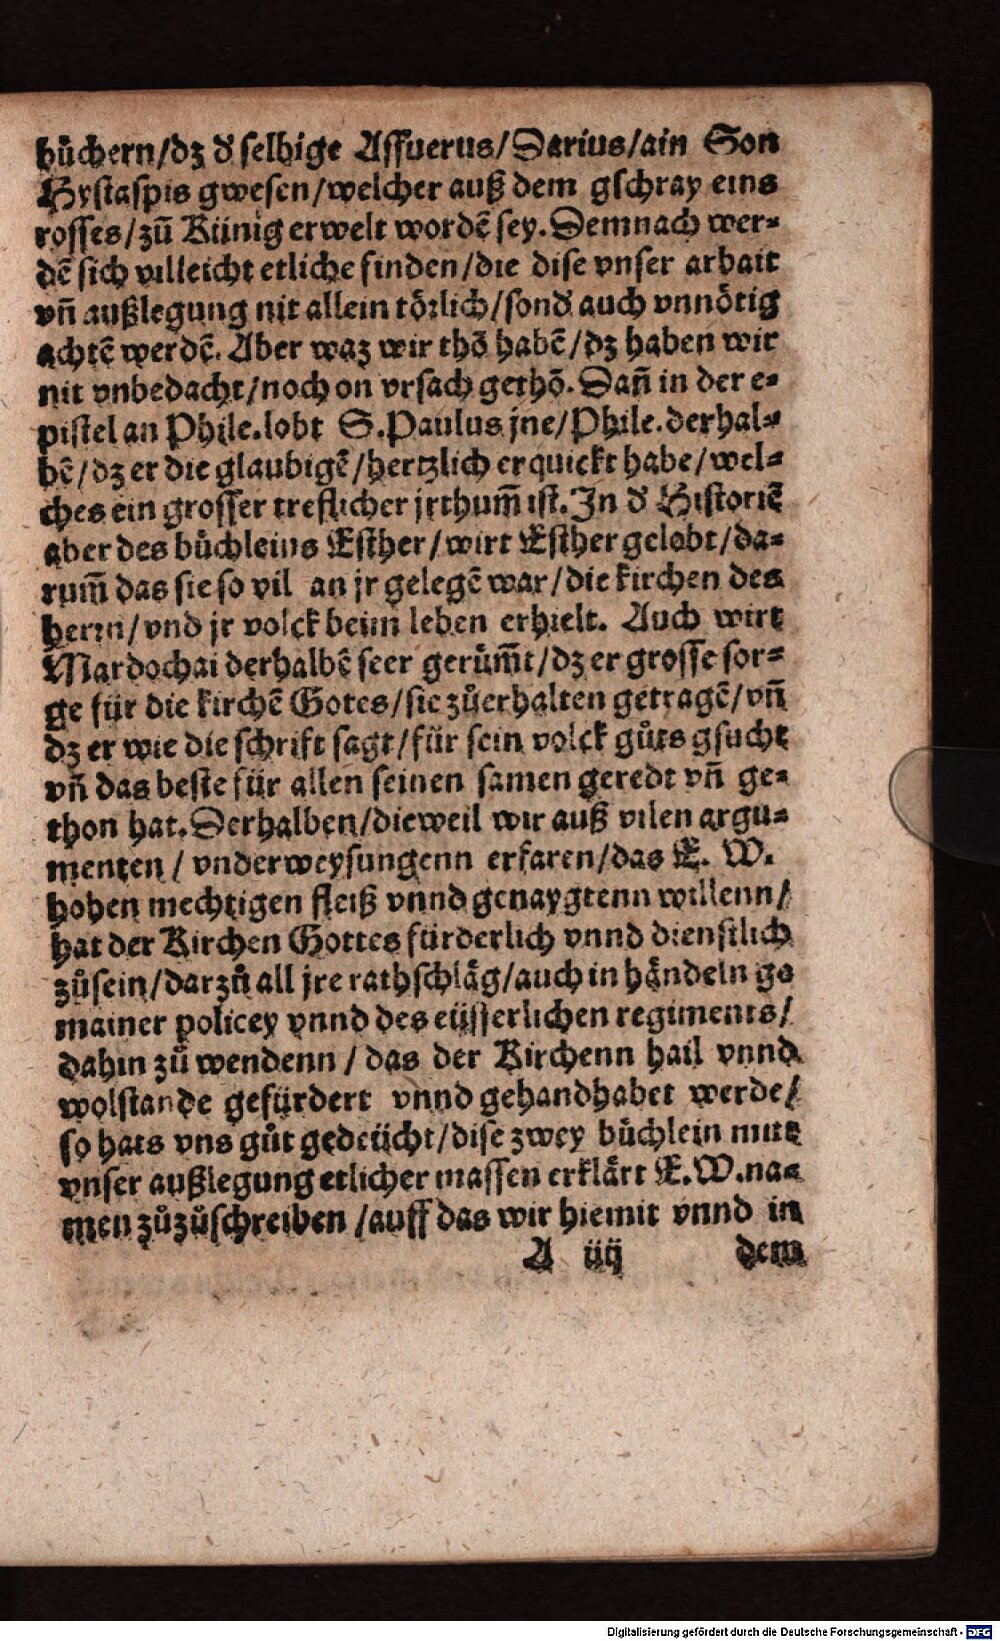 bůchern/dz ď selbige Assuerus/Darius/ain Son
Hystaspis gwesen/welcher auß dem gschray eins
rosses/zů Künig erwelt wordē sey. Demnach wer⸗
dē sich villeicht etliche finden/die dise vnser arbait
vñ außlegung nit allein törlich/sonď auch vnnötig
achtē werdē. Aber waz wir thō habē/dz haben wir
nit vnbedacht/noch on vrsach gethō. Dañ in der e⸗
pistel an Phile. lobt S. Paulus jne/Phile. derhal⸗
bē/dz er die glaubigē/hertzlich erquickt habe/wel⸗
ches ein grosser treflicher jrthum̄ ist. In ď Historiē
aber des bůchleins Esther/wirt Esther gelobt/da⸗
rum̄ das sie so vil an jr gelegē war/die kirchen des
herrn/vnd jr volck beim leben erhielt. Auch wirt
Mardochai derhalbē seer gerům̄t/dz er grosse sor⸗
ge für die kirchē Gotes/sie zůerhalten getragē/vñ
dz er wie die schrift sagt/für sein volck gůts gsucht
vñ das beste für allen seinen samen geredt vñ ge⸗
thon hat. Derhalben/dieweil wir auß vilen argu⸗
menten/vnderweysungenn erfaren/das E. W.
hohen mechtigen fleiß vnnd genaygtenn willenn/
hat der Kirchen Gottes fürderlich vnnd dienstlich
zůsein/darzů all jre rathschläg/auch in händeln ge
mainer policey vnnd des eüsserlichen regiments/
dahin zů wendenn/das der Kirchenn hail vnnd
wolstande gefürdert vnnd gehandhabet werde/
so hats vns gůt gedeücht/dise zwey bůchlein mitt
vnser außlegung etlicher massen erklärt E. W. na⸗
men zůzůschreiben/auff das wir hiemit vnnd in
A iiij dem
Digitalisierung gefördert durch die Deutsche Forschungsgemeinschaft - DFG